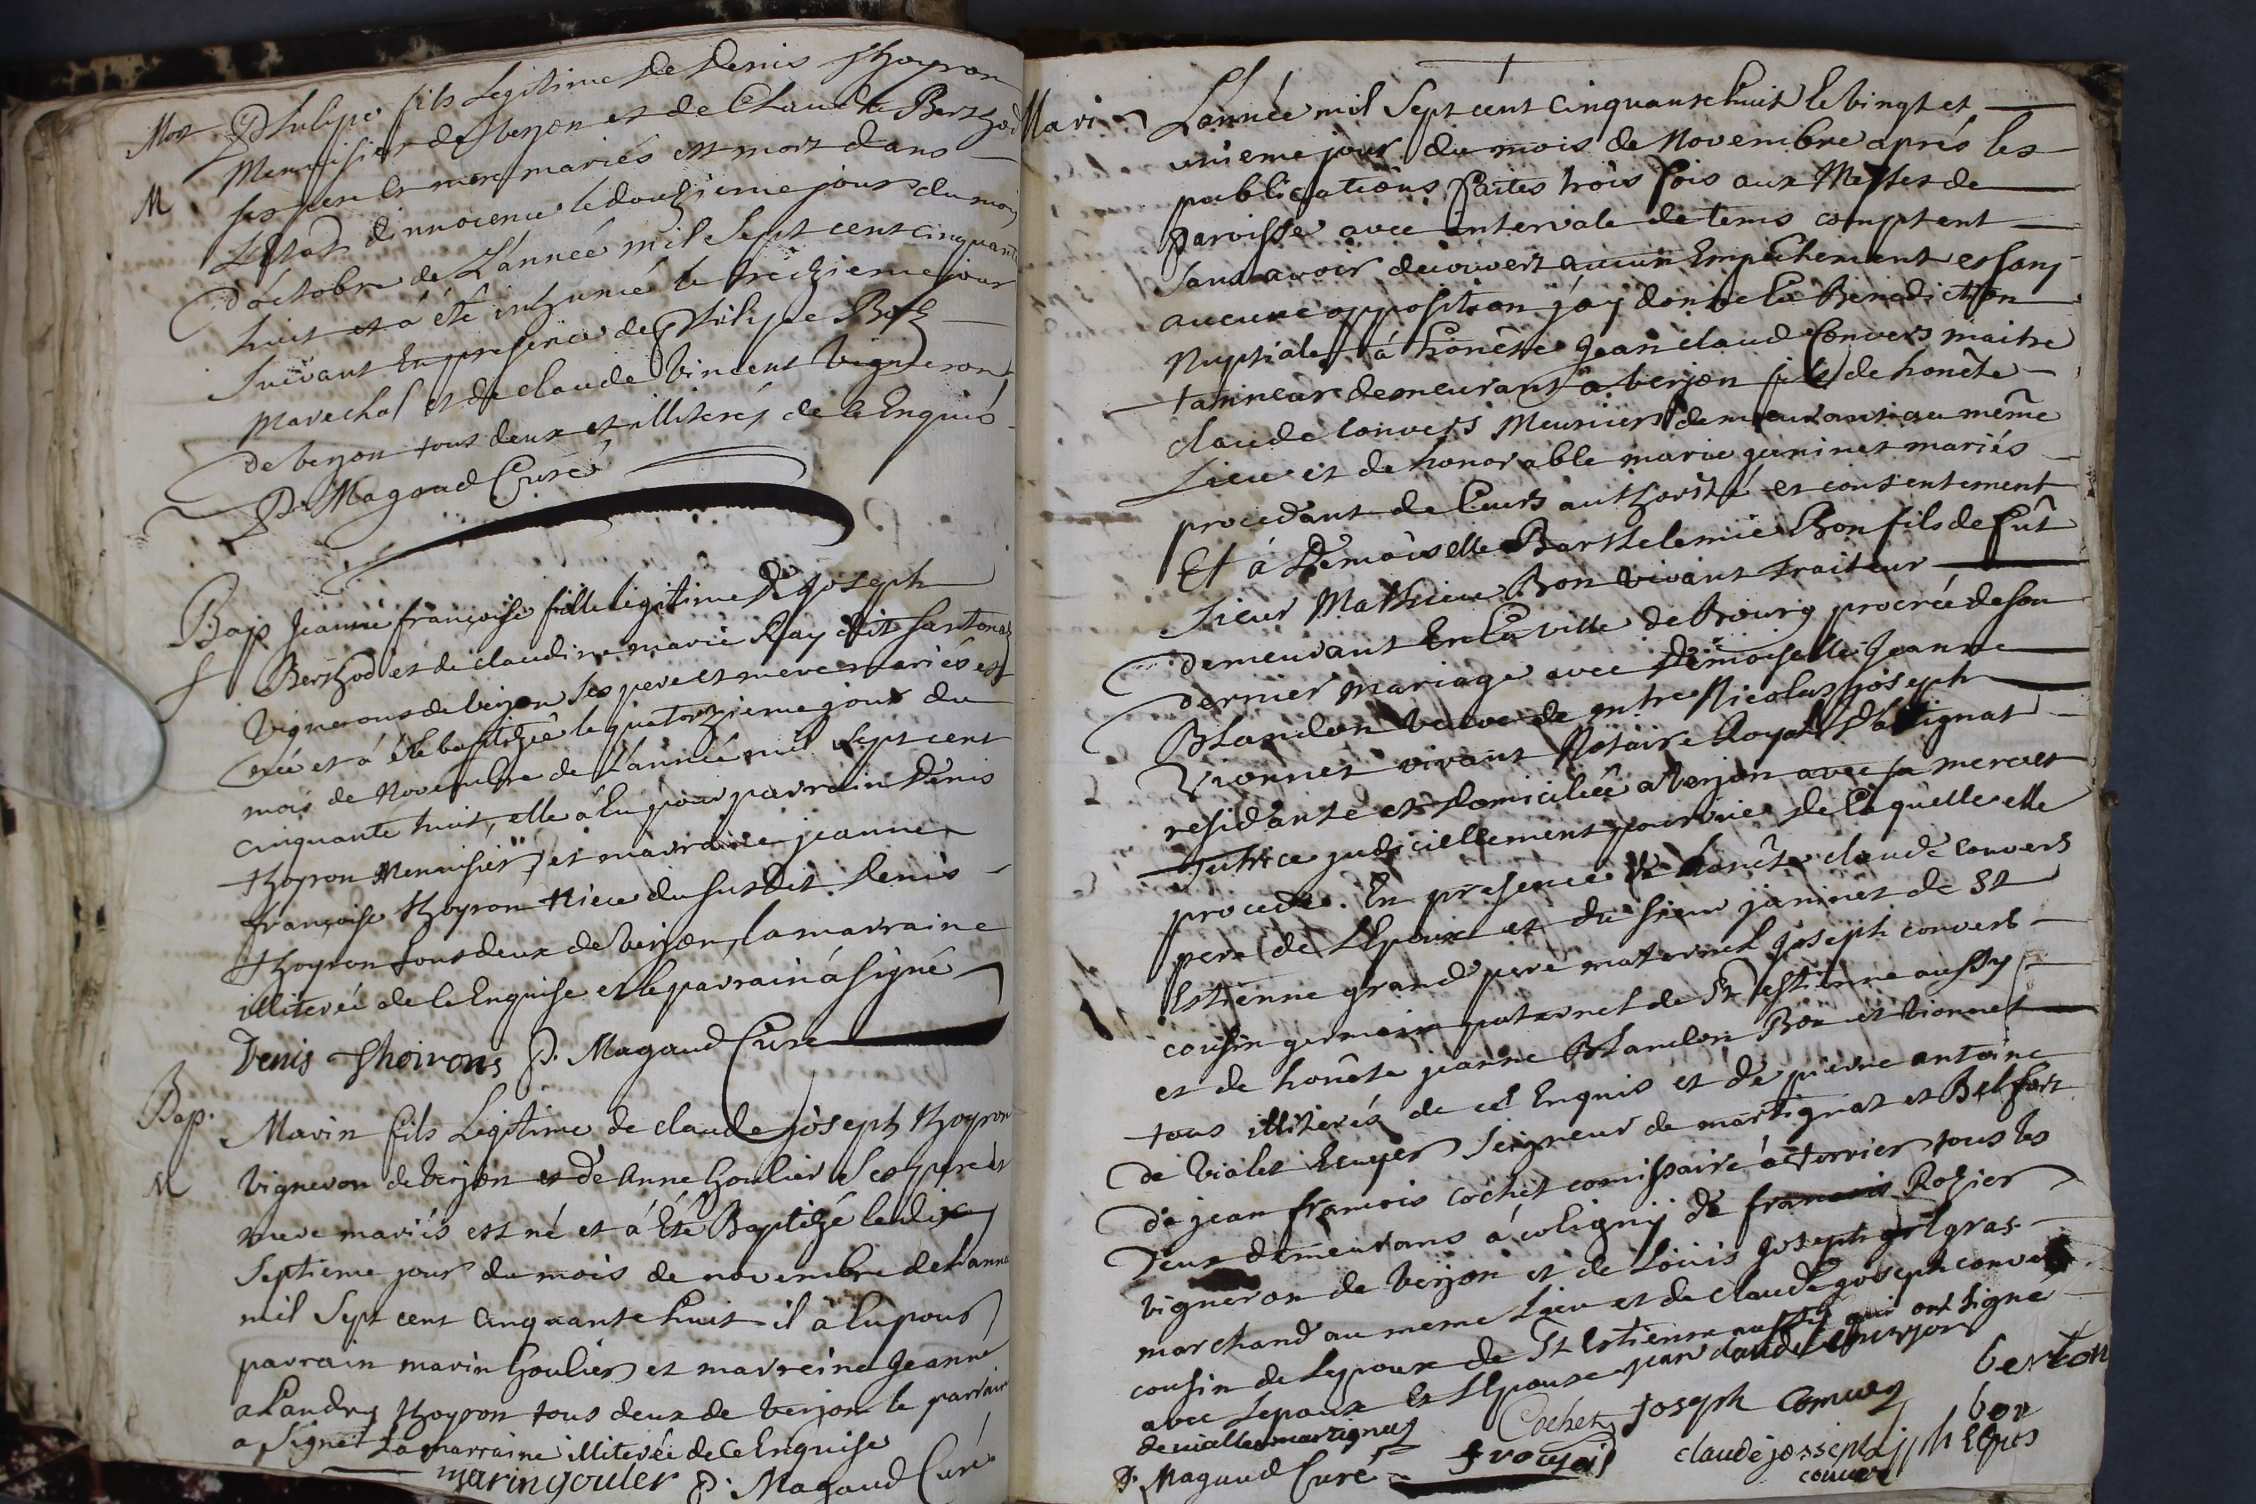 Mort Philipe fils Legitime de Denis Thoyron
Menuisier de Verjon et de Claude Berthod
M ses pere et mere mariés est mort dans
L'Etat d'innocence le douzieme jour du mois
d'octobre de L'année mil Sept cent cinquante
huit et a été inhumé le treizieme jour
Suivant En presence de Philipe
Marechal et de claude Vincent Vigneron
de Verjon tous deux illiterés de ce Enquis
P. Magaud Curé
Bap Jeanne françoise fille legitime de Joseph
f Berthod et de claudine marie Ray dit
Vignerons de Verjon ses pere et mere mariés est
née et à été baptizée le quatorzieme jour du
mois de Novembre de L'année mil Sept cent
cinquante huit, elle à Eu pour parrain Denis
Thoyron Menuisier, et marraine jeanne
françoise Thoyron Niece du susdit Denis
Thoyron tous deux de Verjon, la marraine
illiterée de ce Enquise et le parrain à signé
Denis Thoirons P. Magaud Curé
Bap. Marin fils Legitime de claude joseph Thoyron
M Vigneron de Verjon et de Anne Goulier Ses pere et
mere mariés est né et à Eté Baptizé le dix
Septieme jour du mois de novembre de L'anné
mil Sept cent cinquante huit il à Eu pour
parrain marin Goulier et marreine Jeanne
Thoyron tous deux de Verjon le parrain
a signé La marraine illiterée de ce Enquise
marin gouler P. Magaud Curé
Mari L'année mil Sept cent cinquante huit le vingt et
unieme jour du mois de Novembre aprés les
publications faites trois fois aux Messes de
Paroisse avec intervale de tems competent
Sans avoir decouvert aucun Empechement et sans
aucune opposition j'ay donné La Benediction
Nuptiale à honête Jean claud Convers maitre
tanneur demeurant à Verjon fils de honête
claude Convers Meuniers demeurant au même
Lieu et de honorable marie janinet mariés
procedant de Leurs authorité et consentement
Et à Demoiselle Barthelemie Bon fils de fût
Sieur Mathieu Bon Vivant traiteur
demeurant En La Ville de Bourg procrée de son
dernier mariage avec Demoiselle Jeanne
Blandon Veuve de entre Nicolas joseph
Vionnet vivant Notaire Royal
residante et domiciliée a Verjon avec sa mere et
tutrice judiciellement pourvüe de Laquelle elle
procede. En presence de honête claude Convers
pere de L'Epoux et du sieur janinet de St
Estienne grand pere maternel Joseph convers
cousin germain paternel de St Estienne aussy
et de honête jeanne Blandon Bon et Vionnet
tous illiterés de ce Enquis et de pierre antoine
de Vialet Ecuyer Seigneur de martignat et Belfort
de jean francois cochet comissaire à terrier tous les
deux demeurans à coligny de francois Rozier
Vigneron de Verjon et de Louis Joseph gras
marchand au meme Lieu et de claude joseph convers
cousin de Lepoux de St Estienne aussy qui ont signé
avec Lepoux et L'Epouse jean claude
berton
Cochet joseph Convers bon
P. Magaud Curé claude josseph